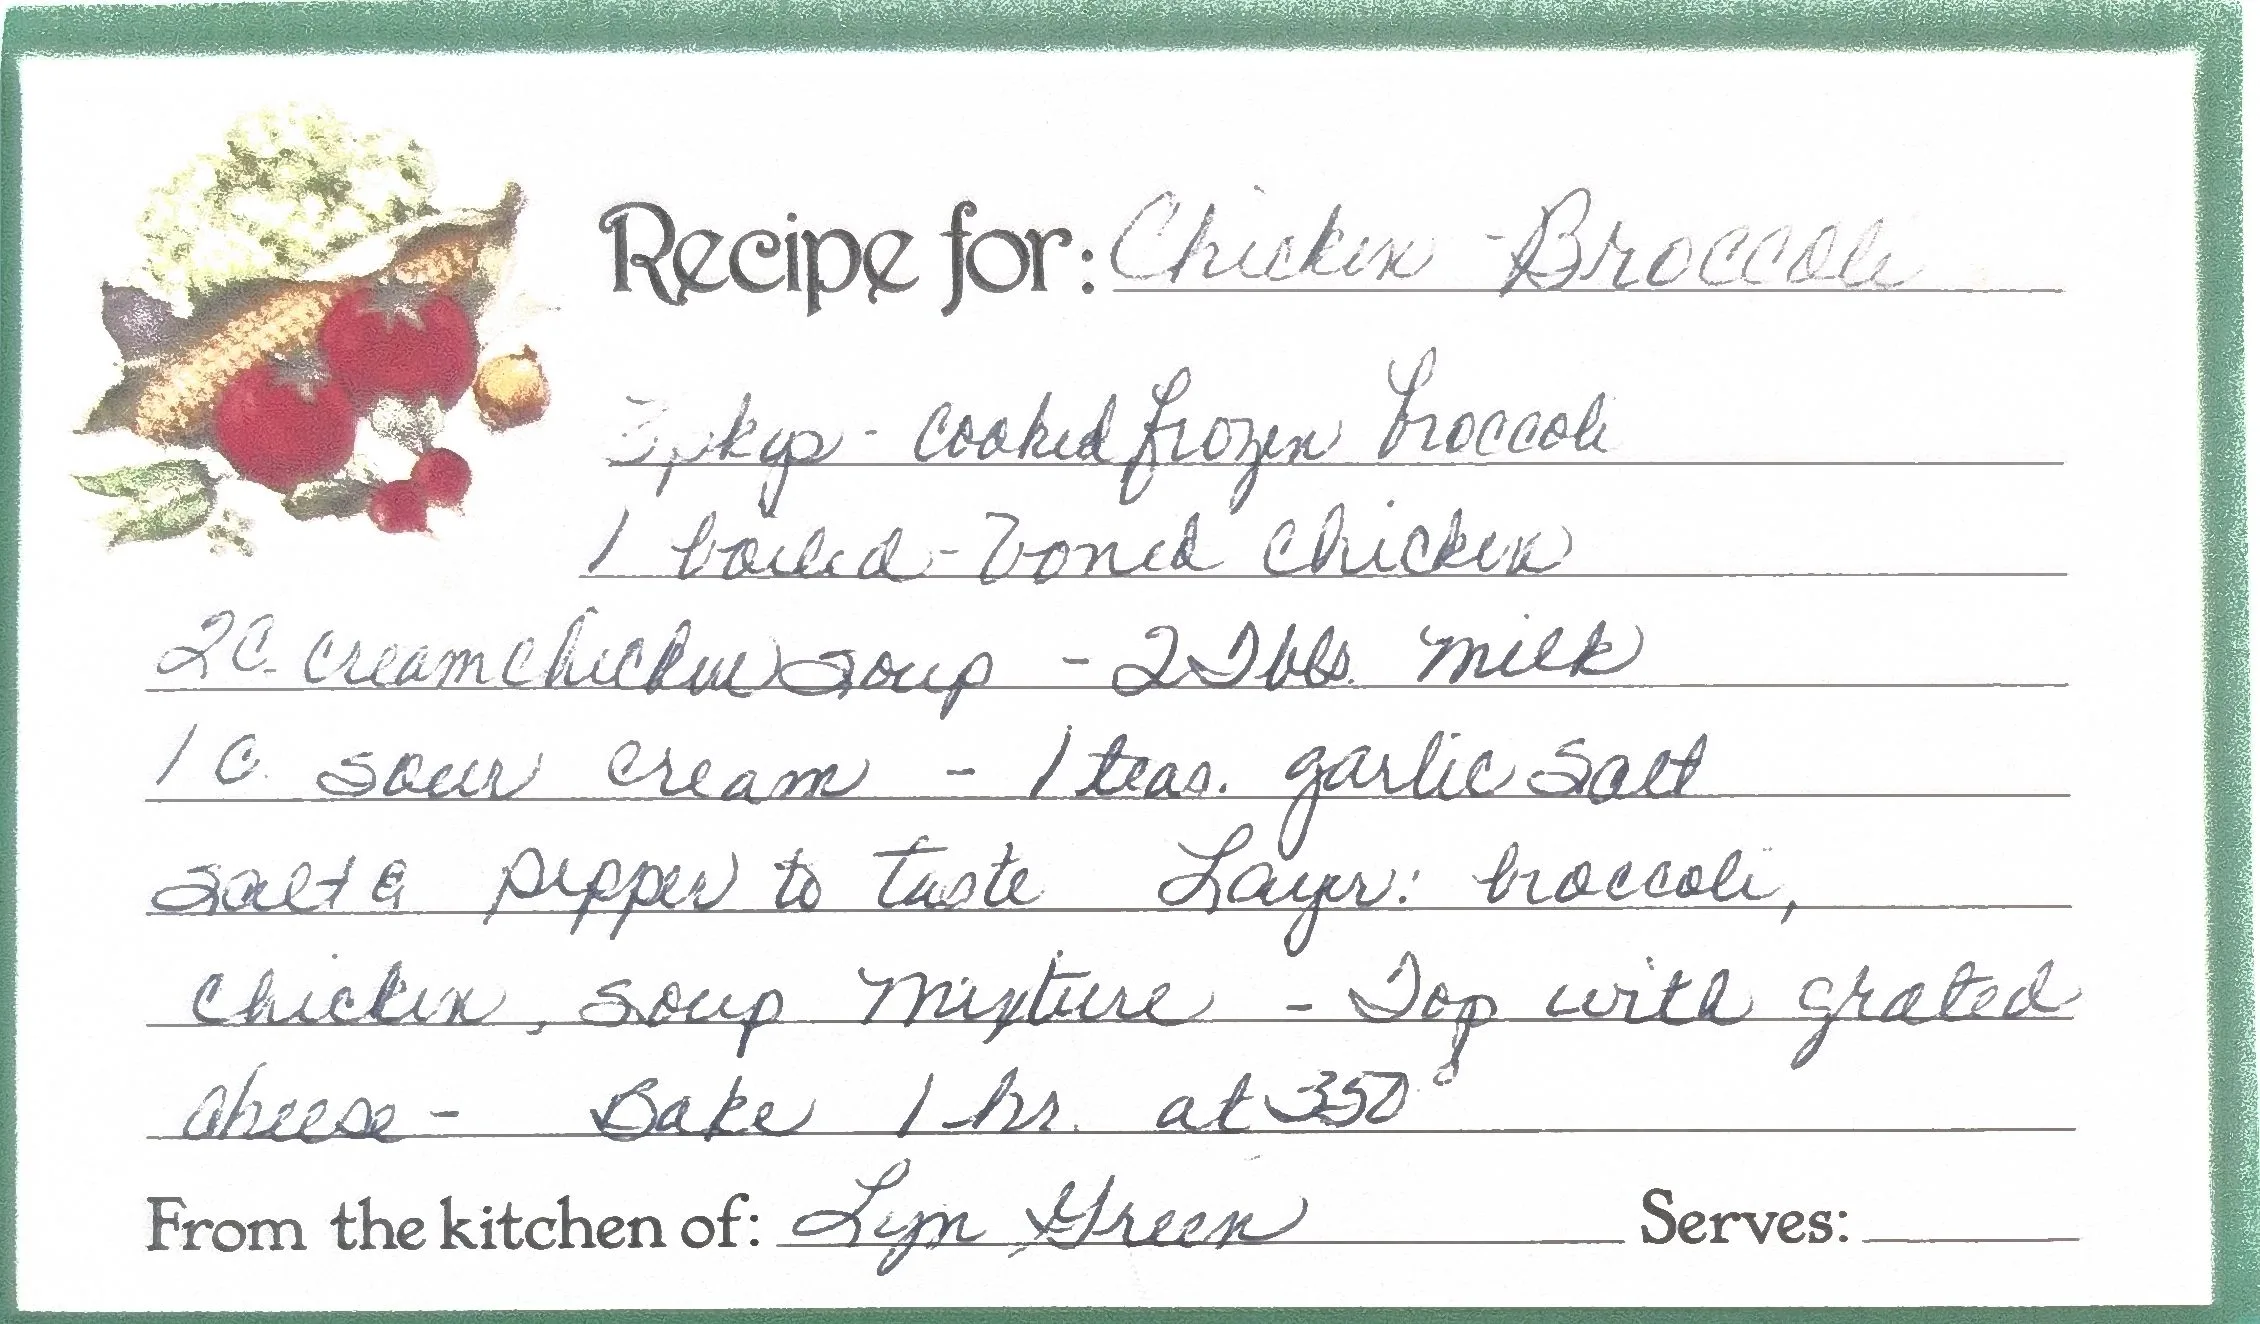 Recipe for: Chicken - Broccoli
3 pkgs - cooked frozen broccoli
1 boiled - boned chicken
2 C. cream chicken soup - 2 Tbls. milk
1 C. sour cream - 1 teas. garlic salt
salt & pepper to taste Layer: broccoli,
chicken, soup mixture - Top with grated
cheese - Bake 1 hr. at 350°
From the kitchen of: Lyn Green Serves: